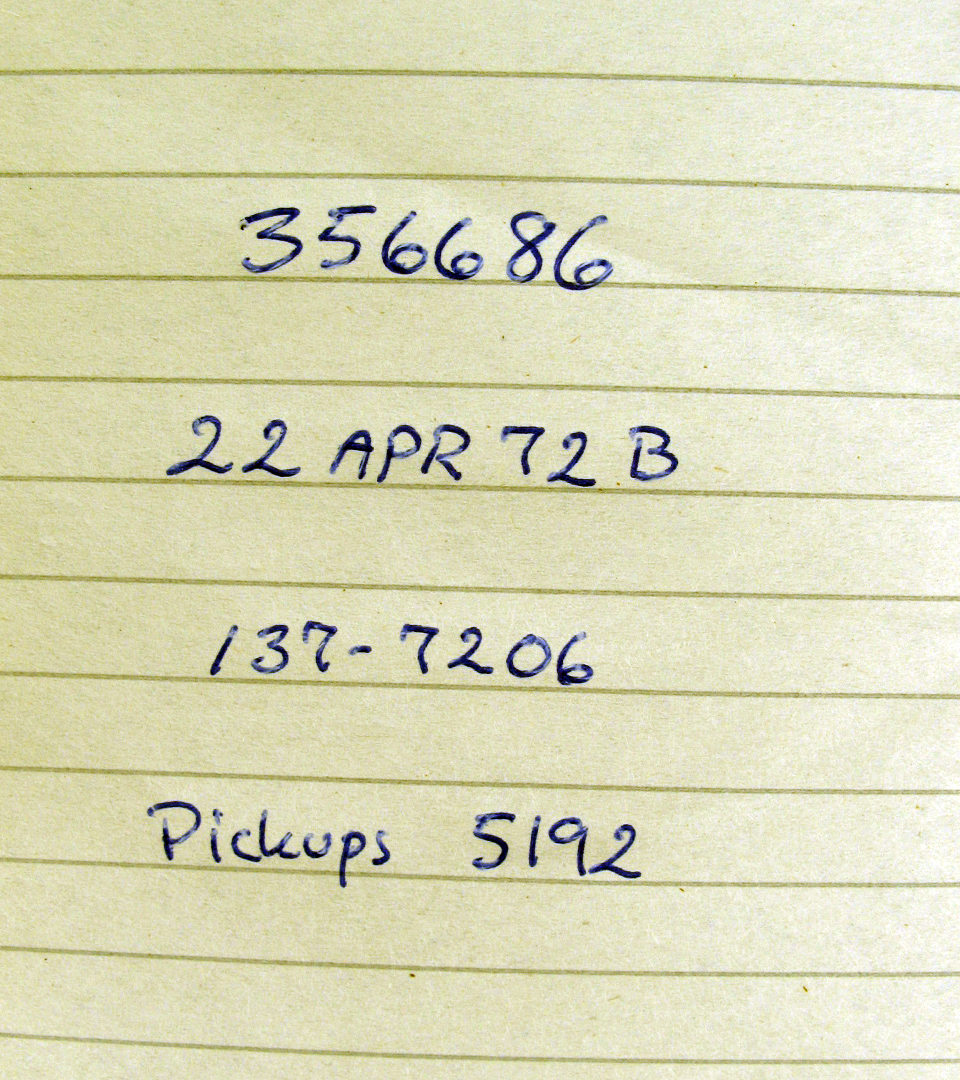 356686
22 APR 72 B
137-7206
Pickups 5192